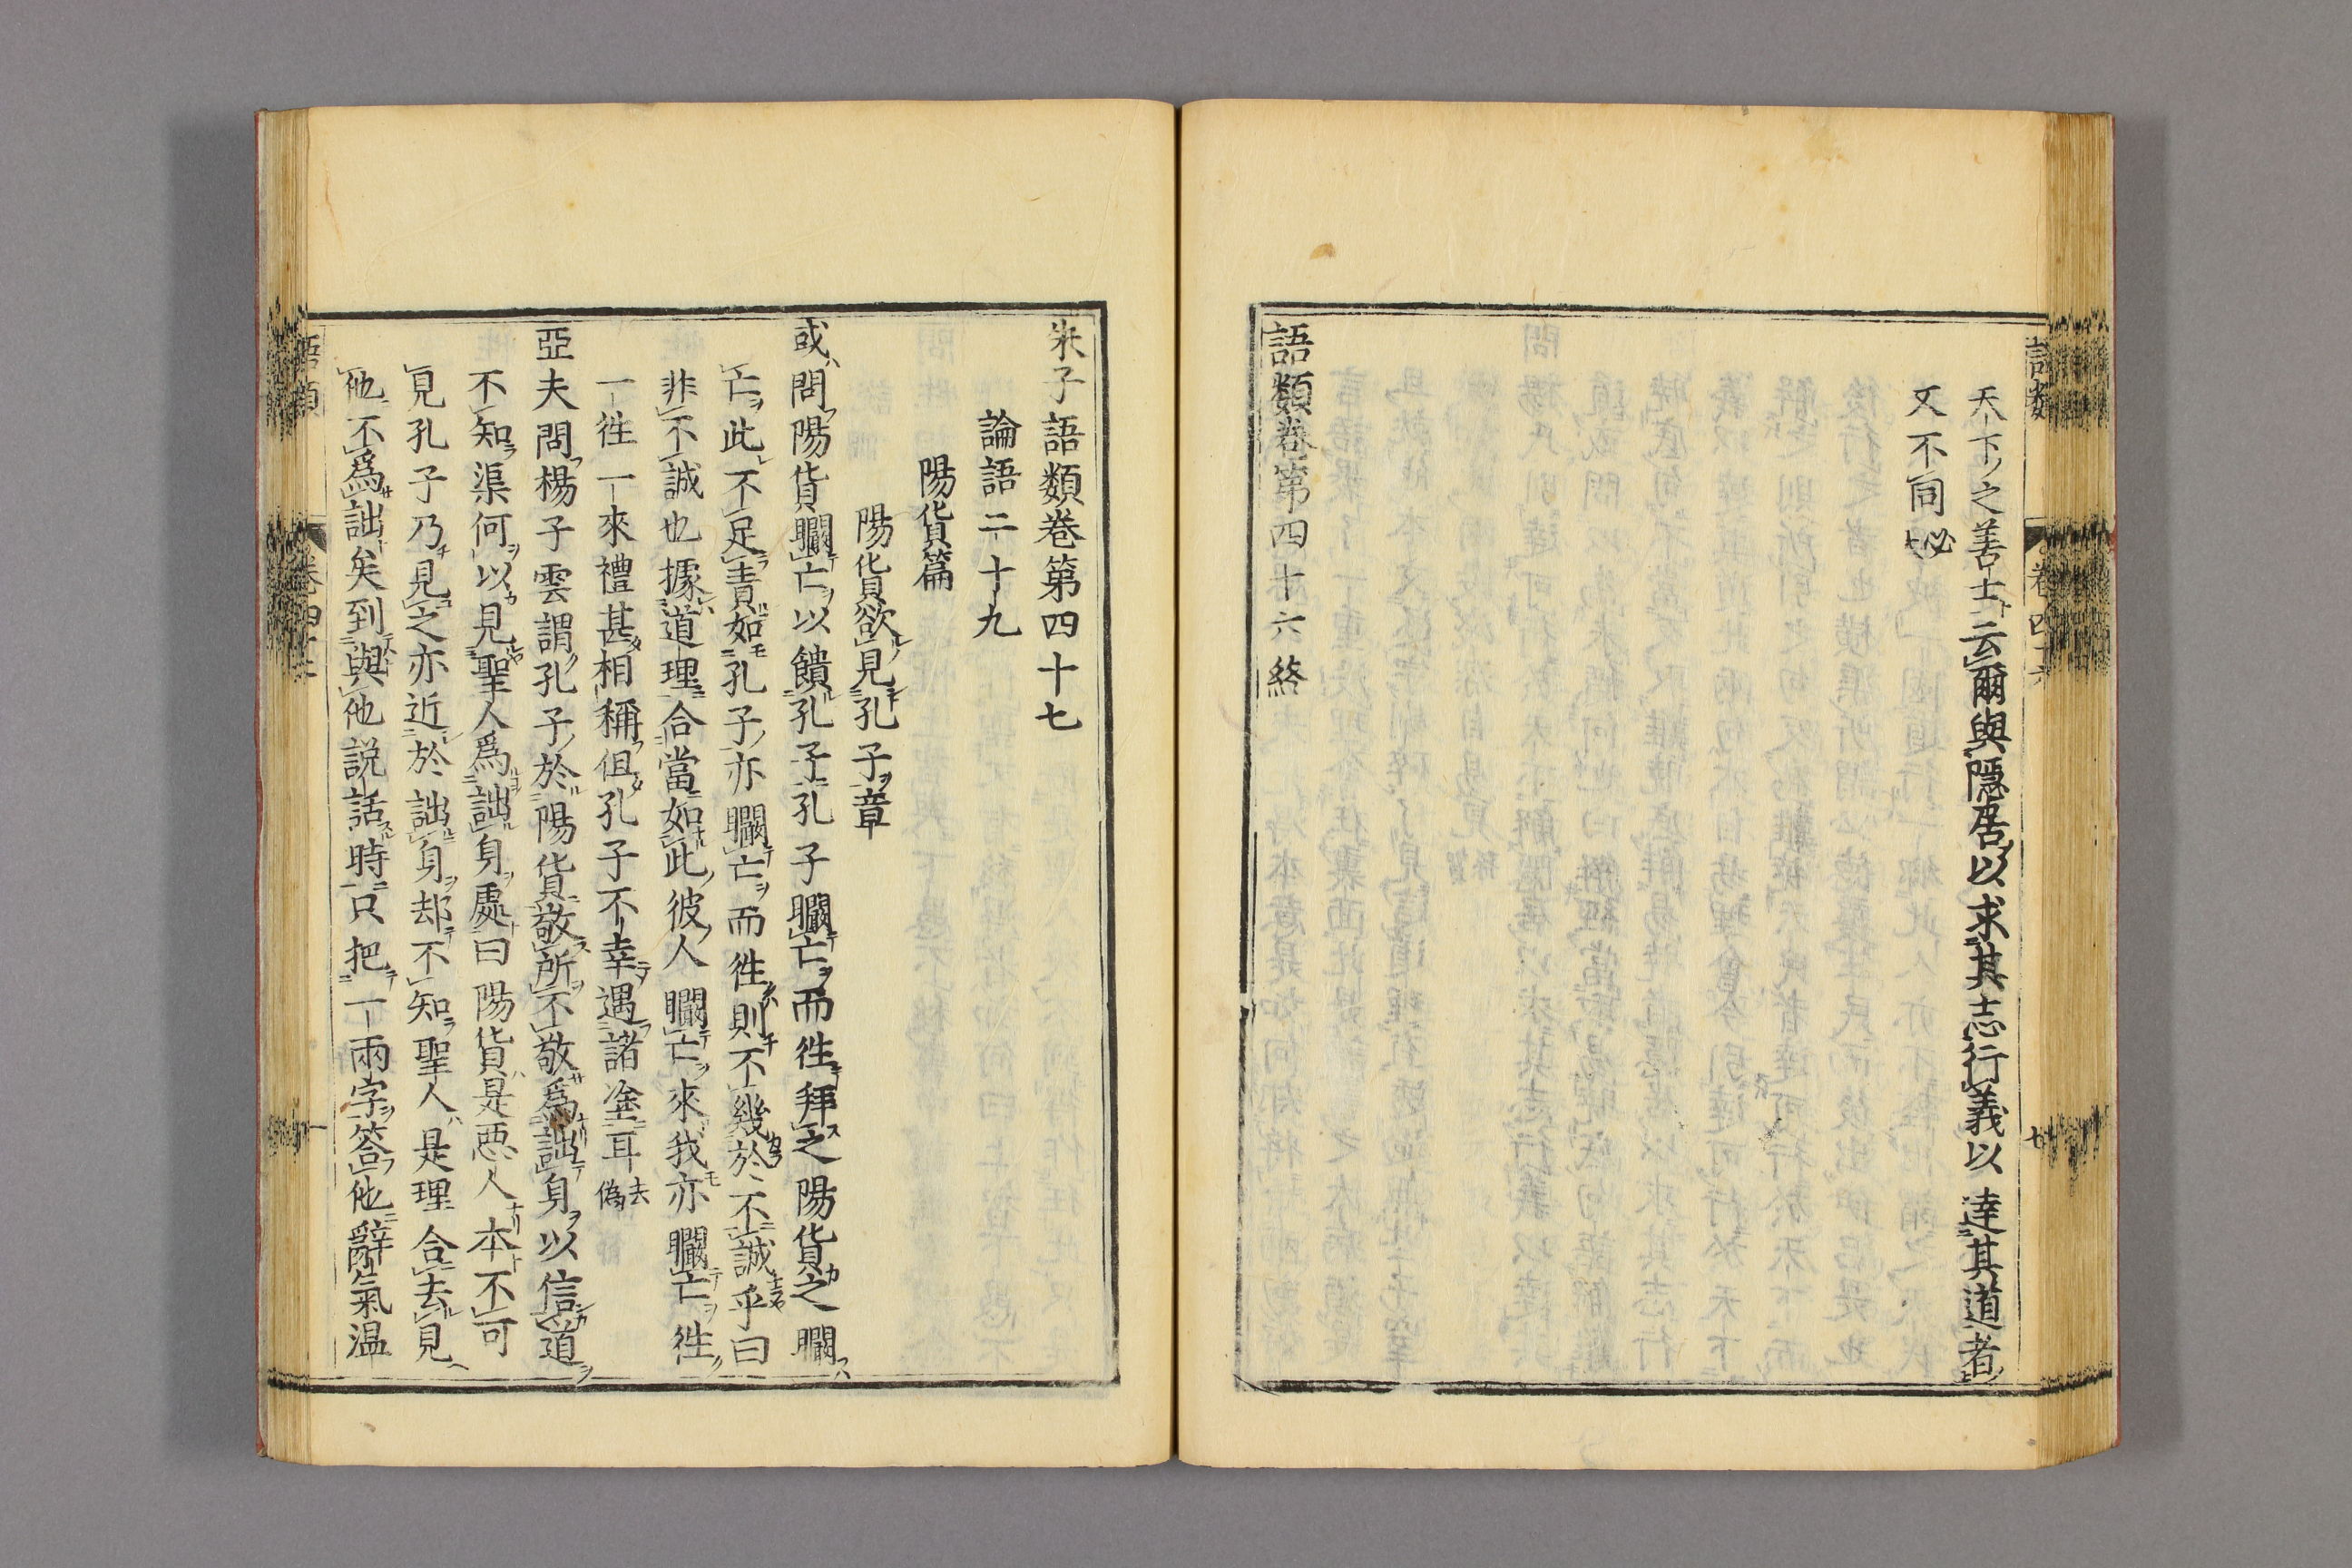 天下之善士云爾與隱居以求其志行義以達其道者
又不同 必大
語類卷第四十六終
朱子語類卷第四十七
論語二十九
陽貨篇
陽貨欲見孔子章
或問陽貨矙亡以饋孔子孔子矙亡而徃拜之陽貨之矙
亡此不足責如孔子亦矙亡而徃則不幾於不誠乎曰
非不誠也據道理合當如此彼人矙亡來我亦矙亡徃
一徃一來禮甚相稱但孔子不幸遇諸塗耳 去偽
亞夫問楊子雲謂孔子於陽貨敬所不敬爲詘身以信道
不知渠何以見聖人爲詘身處曰陽貨是惡人本不可
見孔子乃見之亦近於詘身却不知聖人是理合去見
他不爲詘矣到與他説話時只把一兩字答他辭氣温